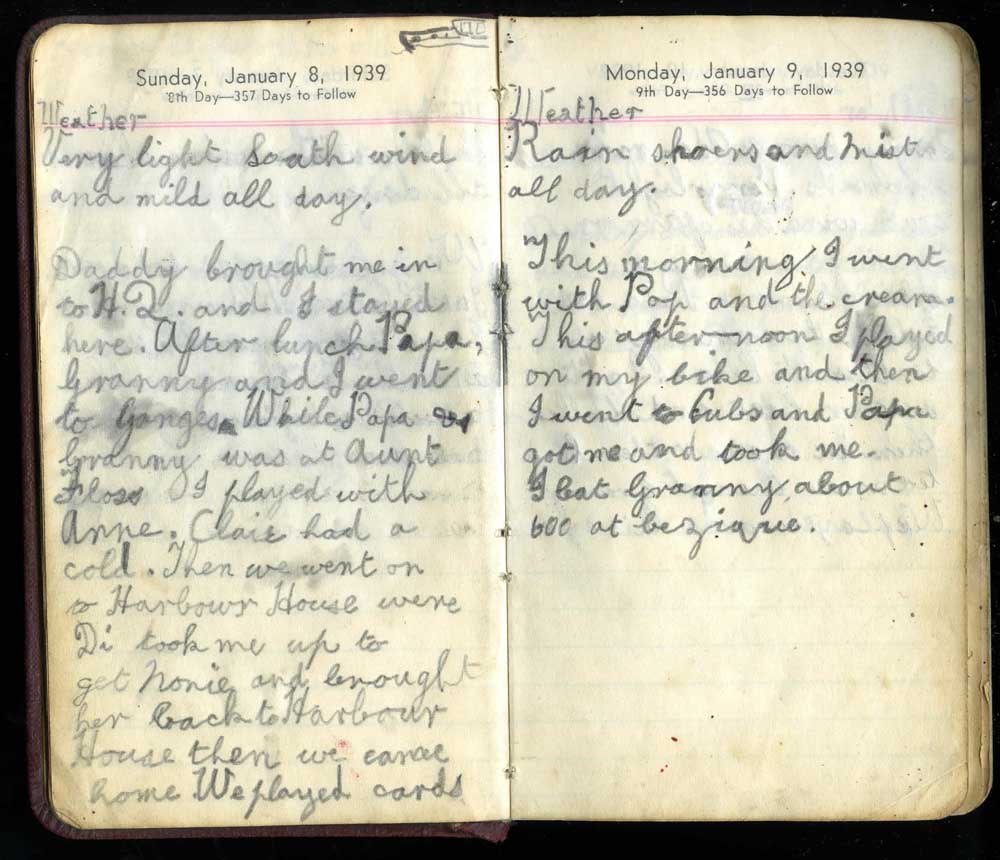 Sunday, January 8, 1939
8th Day—357 Days to Follow
Weather
Very light South wind
and mild all day.
Daddy brought me in
to H.Q. and I stayed
here. After lunch Papa,
Granny and I went
to Ganges. While Papa
Granny was at Aunt
Floss I played with
Anne. Claie had a
cold. Then we went on
to Harbour House were
Di took me up to
get Nonie and brought
her back to Harbour
House then we came
home We played cards
Monday, January 9, 1939
9th Day—356 Days to Follow
Weather
Rain shoers and mist
all day.
This morning I went
with Pap and the cream.
This after-noon I played
on my bike and then
I went to Cubs and Papa
got me and took me.
I beat Granny about
600 at bezique.